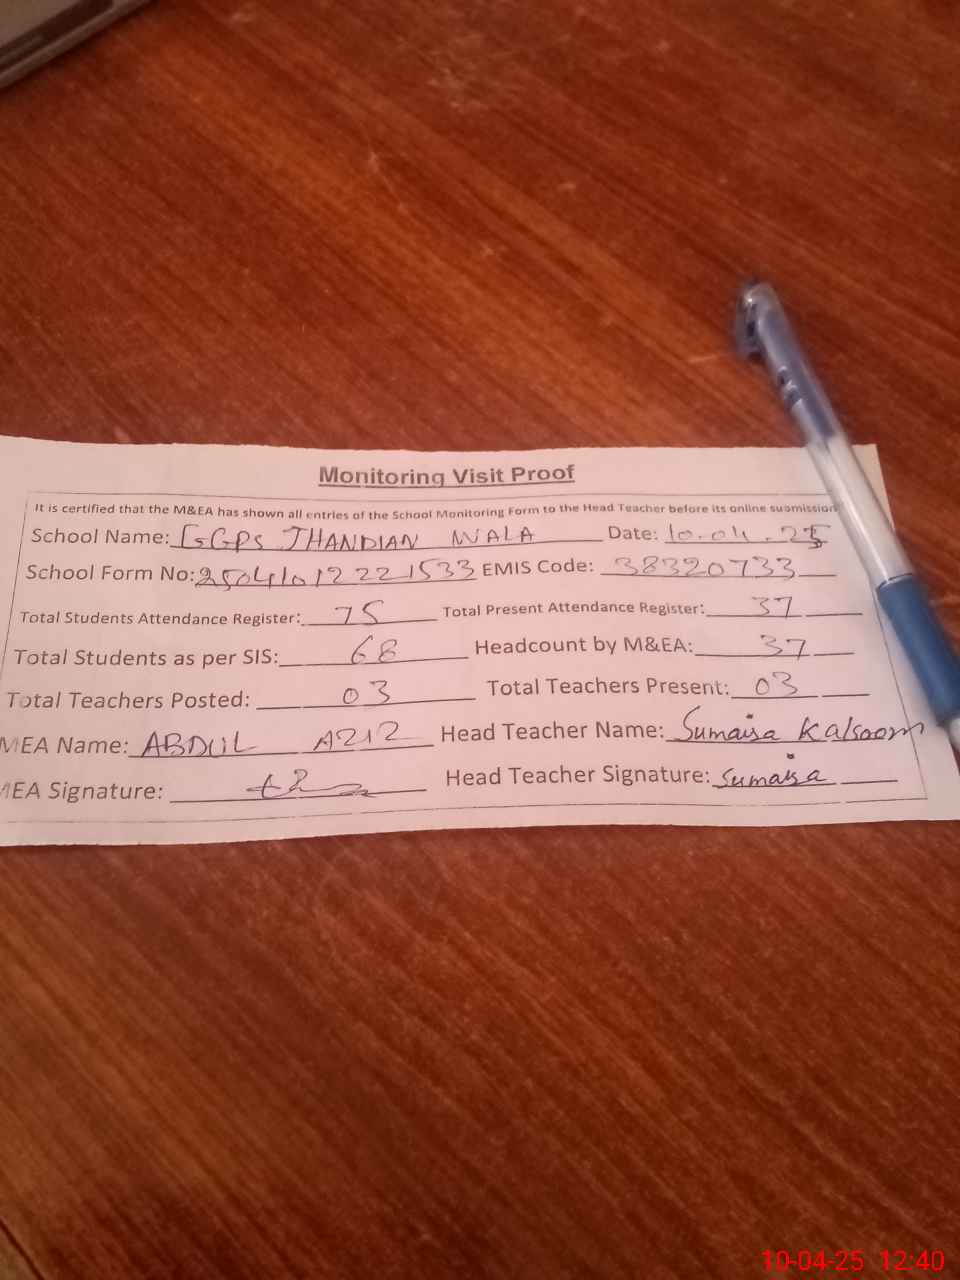 Monitoring Visit Proof
It is certified that the M&EA has shown all entries of the School Monitoring Form to the Head Teacher before its online submission
School Name: GGPS JHANDIAN WALA Date: 10.04.25
School Form No: 25041012221533 EMIS Code: 38320733
Total Students Attendance Register: 75 Total Present Attendance Register: 37
Total Students as per SIS: 68 Headcount by M&EA: 37
Total Teachers Posted: 03 Total Teachers Present: 03
MEA Name: ABDUL AZIZ Head Teacher Name: Sumaisa Kalsoom
MEA Signature: Head Teacher Signature: Sumaisa
10-04-25 12:40